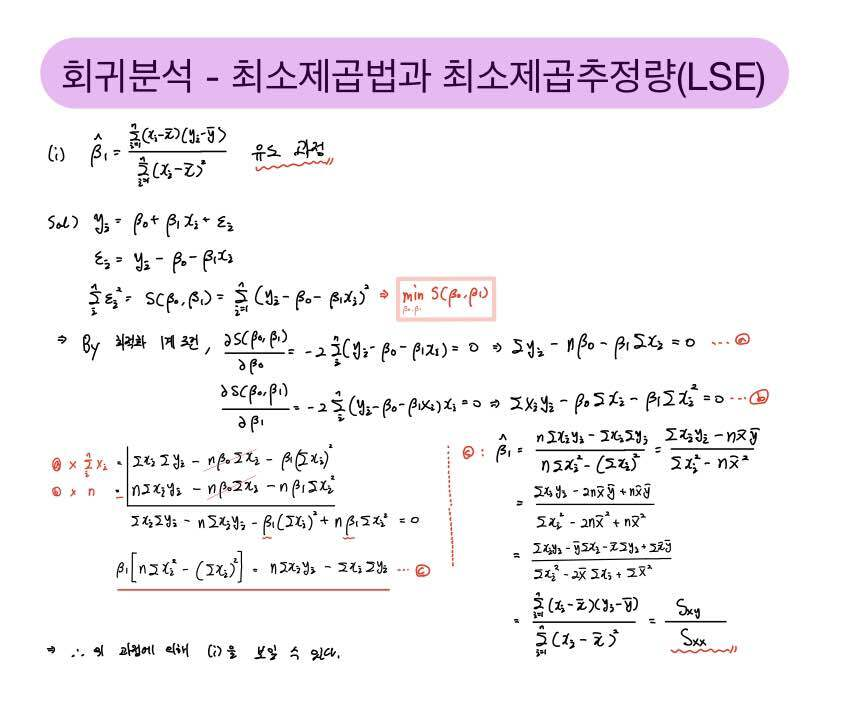 회귀분석 - 최소제곱법과 최소제곱추정량(LSE)
(i) β̂₁ = Σⁿᵢ₌₁(xᵢ-x̄)(yᵢ-ȳ) / Σⁿᵢ₌₁(xᵢ-x̄)² 유도 과정
Sol) yᵢ = β₀ + β₁xᵢ + εᵢ
εᵢ = yᵢ - β₀ - β₁xᵢ
Σⁿᵢ εᵢ² = S(β₀,β₁) = Σⁿᵢ₌₁(yᵢ - β₀ - β₁xᵢ)² ⇒ min β₀,β₁ S(β₀,β₁)
⇒ By 최적화 1계 조건, ∂S(β₀,β₁)/∂β₀ = -2Σⁿᵢ(yᵢ - β₀ - β₁xᵢ) = 0 ⇒ Σyᵢ - nβ₀ - β₁Σxᵢ = 0 ... ⓐ
∂S(β₀,β₁)/∂β₁ = -2Σⁿᵢ(yᵢ-β₀-β₁xᵢ)xᵢ = 0 ⇒ Σxᵢyᵢ - β₀Σxᵢ - β₁Σxᵢ² = 0 ... ⓑ
ⓐ × Σⁿᵢ xᵢ = Σxᵢ Σyᵢ - nβ₀Σxᵢ - β₁(Σxᵢ)²
ⓑ × n = - nΣxᵢyᵢ - nβ₀Σxᵢ - nβ₁Σxᵢ²
ΣxᵢΣyᵢ - nΣxᵢyᵢ - β₁(Σxᵢ)² + nβ₁Σxᵢ² = 0
β₁[nΣxᵢ² - (Σxᵢ)²] = nΣxᵢyᵢ - Σxᵢ Σyᵢ ... ⓒ
ⓒ : β̂₁ = (nΣxᵢyᵢ - ΣxᵢΣyᵢ) / (nΣxᵢ² - (Σxᵢ)²) = (Σxᵢyᵢ - nx̄ȳ) / (Σxᵢ² - nx̄²)
= (Σxᵢyᵢ - 2nx̄ȳ + nx̄ȳ) / (Σxᵢ² - 2nx̄² + nx̄²)
= (Σxᵢyᵢ - ȳΣxᵢ - x̄Σyᵢ + Σx̄ȳ) / (Σxᵢ² - 2x̄Σxᵢ + Σx̄²)
= Σⁿᵢ₌₁(xᵢ-x̄)(yᵢ-ȳ) / Σⁿᵢ₌₁(xᵢ-x̄)² = Sxy / Sxx
⇒ ∴ 위 과정에 의해 (i)을 보일 수 있다.